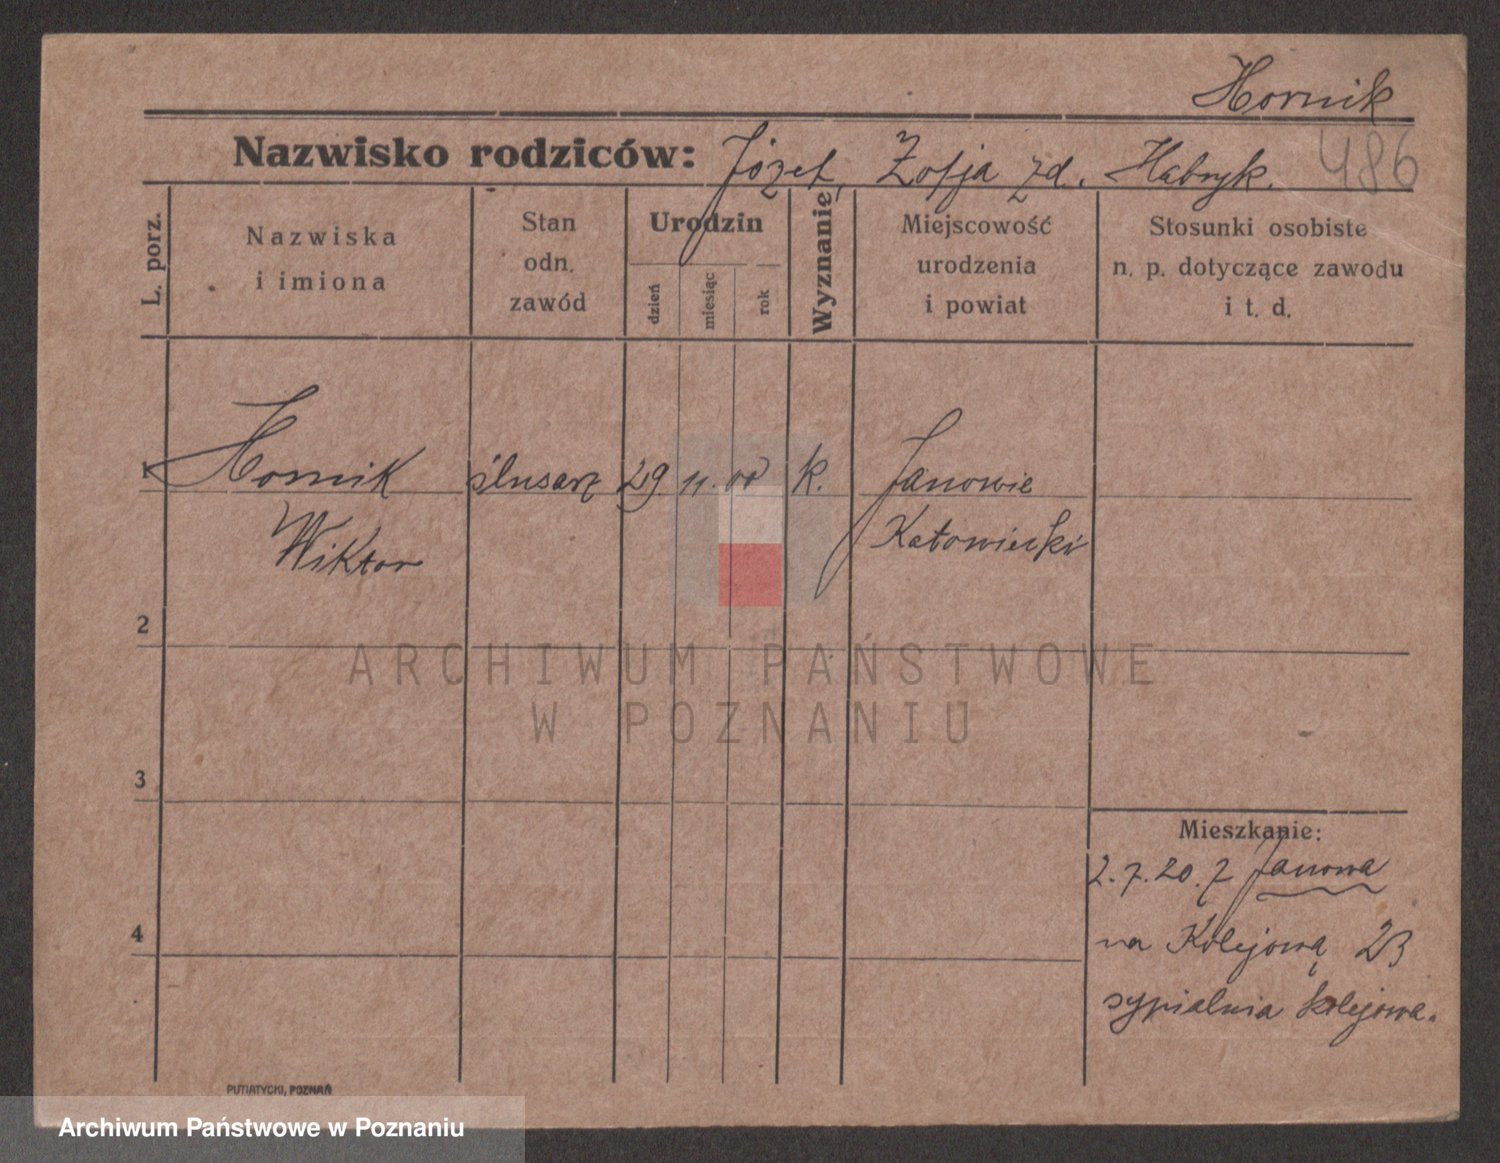 Hornik
Nazwisko rodziców: Józef, Zofja zd. Habryk.
486
L. porz.
Nazwiska
i imiona
Stan
odn.
zawód
Urodzin
dzień
miesiąc
rok
Wyznanie
Miejscowość
urodzenia
i powiat
Stosunki osobiste
n. p. dotyczące zawodu
i t. d.
1 Hornik ślusarz 29. 11. 00 k. Janowie
Wiktor Katowiecki
2
ARCHIWUM PAŃSTWOWE
W POZNANIU
3
Mieszkanie:
2.7.20. z Janowa
4 na Kolejową 23
sypialnia kolejowa.
PUTIATYCKI, POZNAŃ
Archiwum Państwowe w Poznaniu